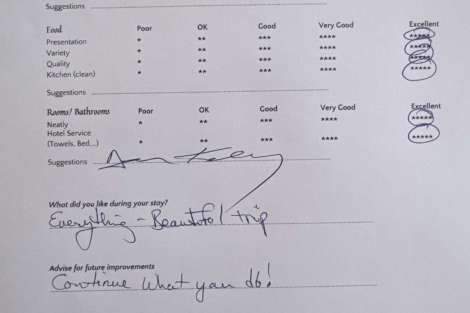 Suggestions
Food Poor OK Good Very Good Excellent
Presentation * ** *** **** *****
Variety * ** *** **** *****
Quality * ** *** **** *****
Kitchen (clean) * ** *** **** *****
Suggestions
Rooms/ Bathrooms Poor OK Good Very Good Excellent
Neatly * ** *** **** *****
Hotel Service
(Towels, Bed...) * ** *** **** *****
Suggestions
What did you like during your stay?
Everything - Beautiful trip
Advise for future improvements
Continue what you do!